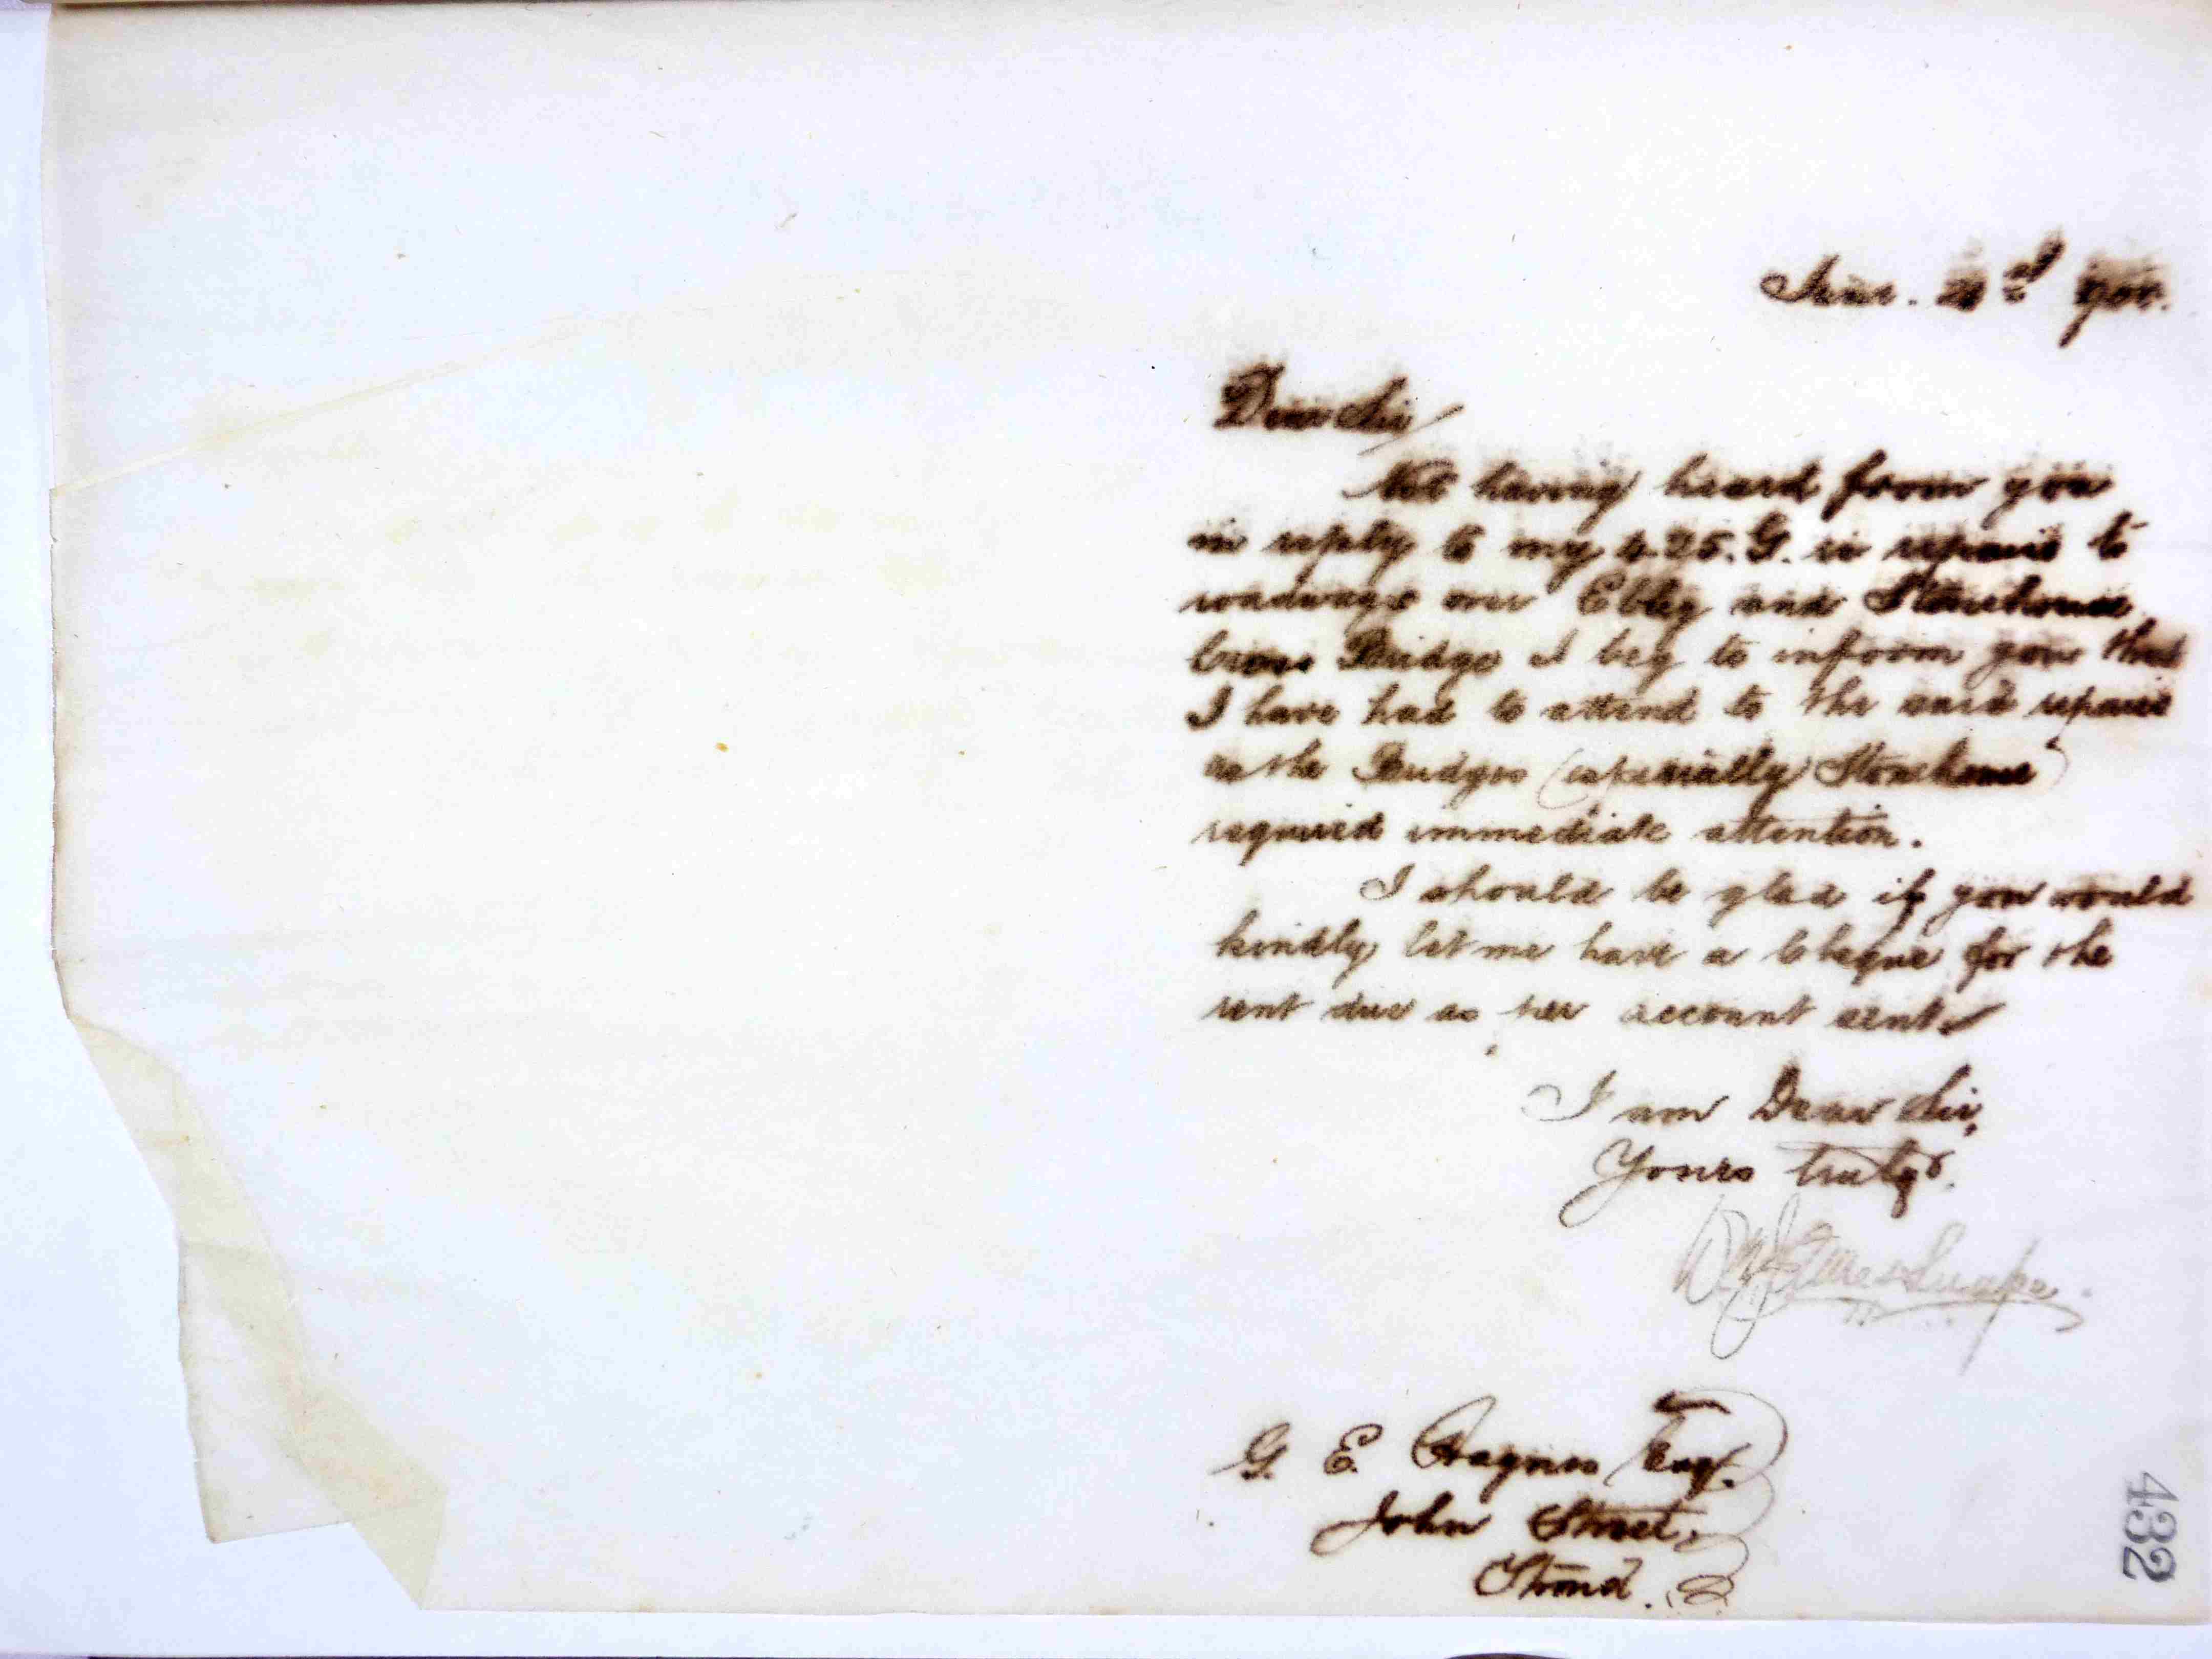 June. 2nd 900.
Dear Sir/
Not having heard from you
in reply to my 425. G. re repairs to
roadways over Ebley and Stonehouse
Cross Bridge I beg to inform you that
I have had to attend to the said repairs
as the Bridges (especially Stonehouse)
required immediate attention.
I should be glad if you would
kindly let me have a Cheque for the
rent due as per account sent.
I am Dear Sir,
Yours truly.
G. E. Esq.
John Street,
Stroud.
432